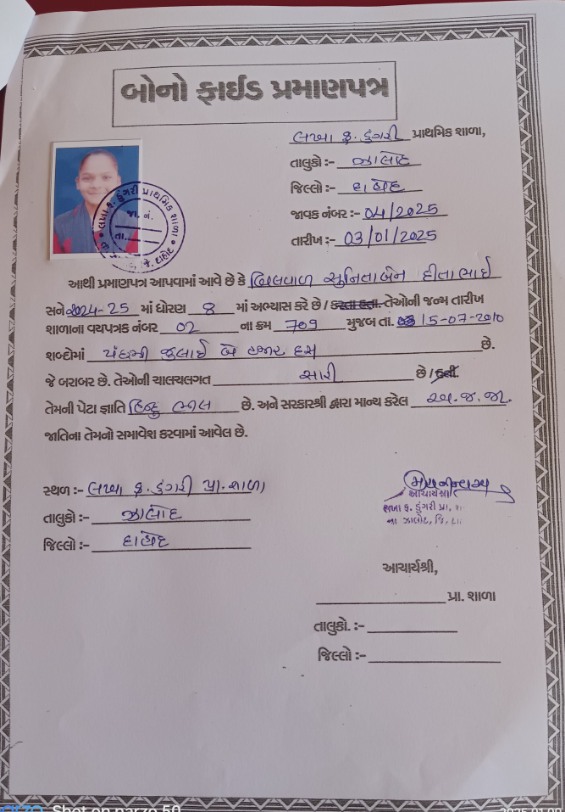 બોનોફાઈડ પ્રમાણપત્ર
લખા ફ. ડુંગરી પ્રાથમિક શાળા,
તાલુકો :- ઝાલોદ
જિલ્લો :- દાહોદ
જાવક નંબર :- 04/2025
તારીખ :- 03/01/2025
આથી પ્રમાણપત્ર આપવામાં આવે છે કે બિલવાળ સુનિતાબેન હીતાભાઈ
સને 2024-25 માં ધોરણ 8 માં અભ્યાસ કરે છે / કરતા હતા. તેઓની જન્મ તારીખ
શાળાના વયપત્રક નંબર 02 ના ક્રમ 709 મુજબ તા. 15-07-2010
શબ્દોમાં પંદરમી જુલાઈ બે હજાર દસ છે.
જે બરાબર છે. તેઓની ચાલચલગત સારી છે / હતી
તેમની પેટા જ્ઞાતિ હિન્દુ ભીલ છે. અને સરકારશ્રી દ્વારા માન્ય કરેલ અ.જ.જા.
જાતિના તેમનો સમાવેશ કરવામાં આવેલ છે.
સ્થળ :- લખા ફ. ડુંગરી પ્રા. શાળા
તાલુકો :- ઝાલોદ
જિલ્લો :- દાહોદ
આચાર્યશ્રી
લખા ફ. ડુંગરી પ્રા. શા
તા ઝાલોદ, જિ. દા
આચાર્યશ્રી,
પ્રા. શાળા
તાલુકો. :-
જિલ્લો :-
Shot on narzo 50